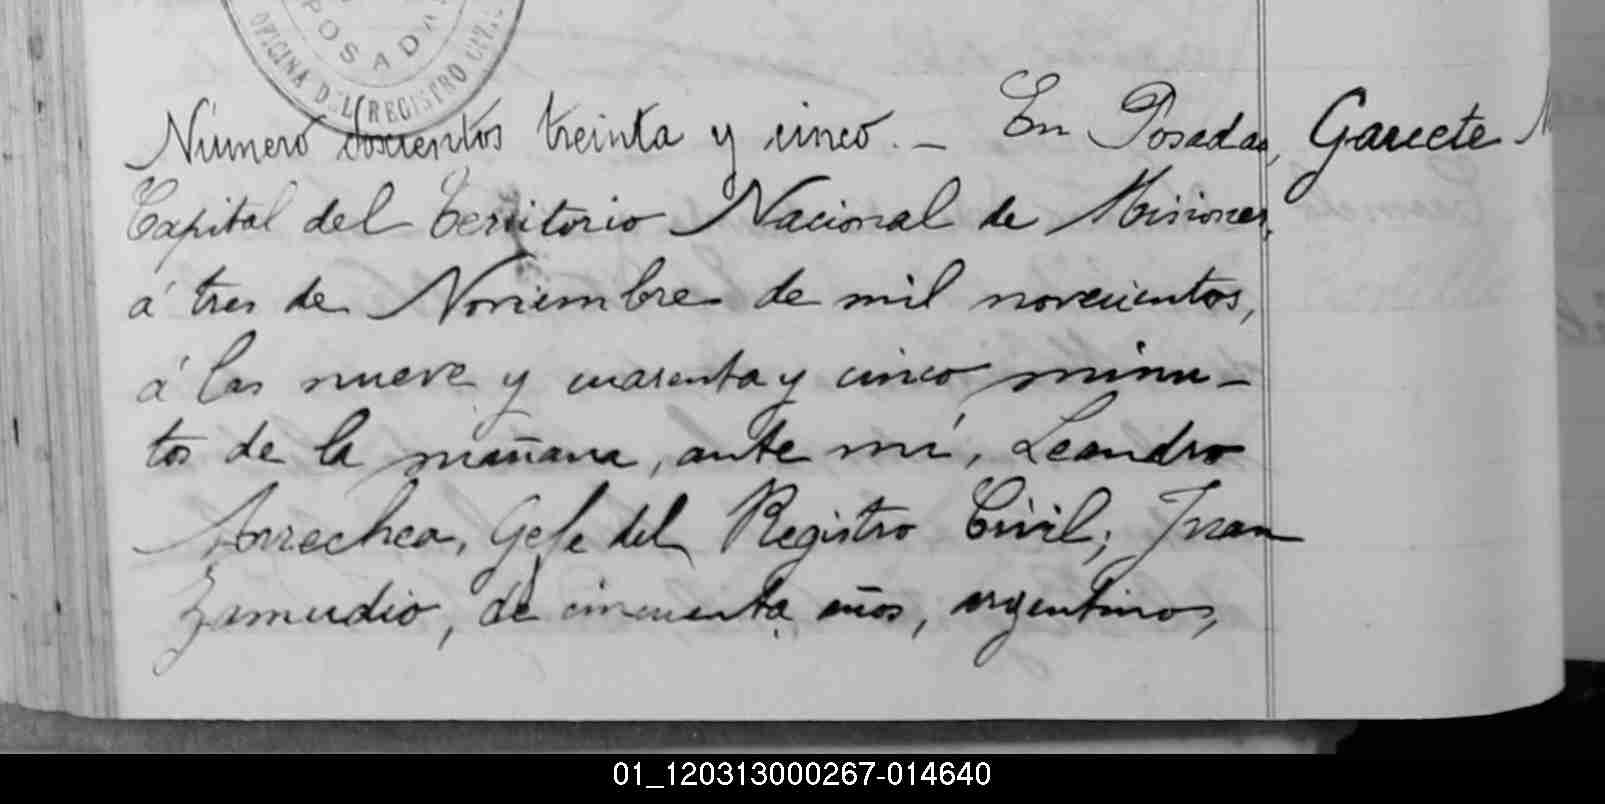 POSADAS
OFICINA DEL REGISTRO CIVIL
Número doscientos treinta y cinco. – En Posadas,
Garcete
Capital del Territorio Nacional de Misiones,
á tres de Noviembre de mil novecientos,
á las nueve y cuarenta y cinco minu-
tos de la mañana, ante mí, Leandro
Arrechea, Gefe del Registro Civil; Juan
Zamudio, de cincuenta años, argentino,
01_120313000267-014640